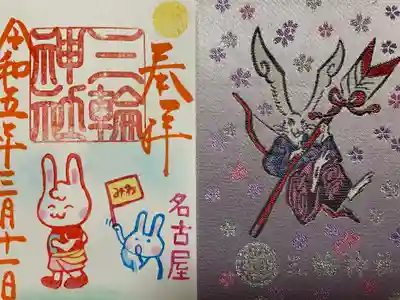 奉拝
三輪
神社
令和五年三月十一日
みわ
名古屋
三輪神社